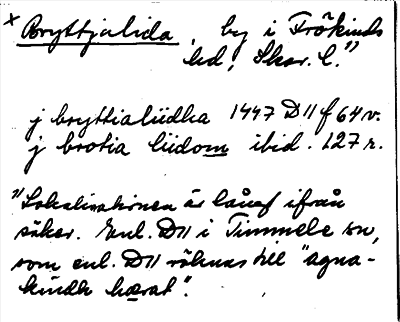 x Bryttjalida, by i Frökinds
hd, Skar. l.¹⁾
j bryttialiidha 1447 D 11 f 64 v.
j brotia liidom ibid. 127 r.
¹⁾ Lokaliseringen är långt ifrån
säker. Enl. D 11 i Timmele sn,
som enl. D 11 räknas till "agna-
kindh hærat".